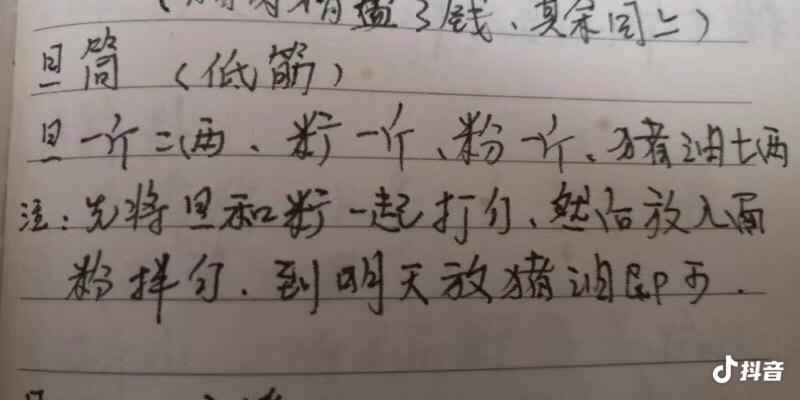 精盐3钱、其余同上）
旦筒（低筋）
旦一斤二两、籵一斤、粉一斤、猪油七两
注：先将旦和籵一起打匀、然后放入面
粉拌匀．到明天放猪油即可．
抖音